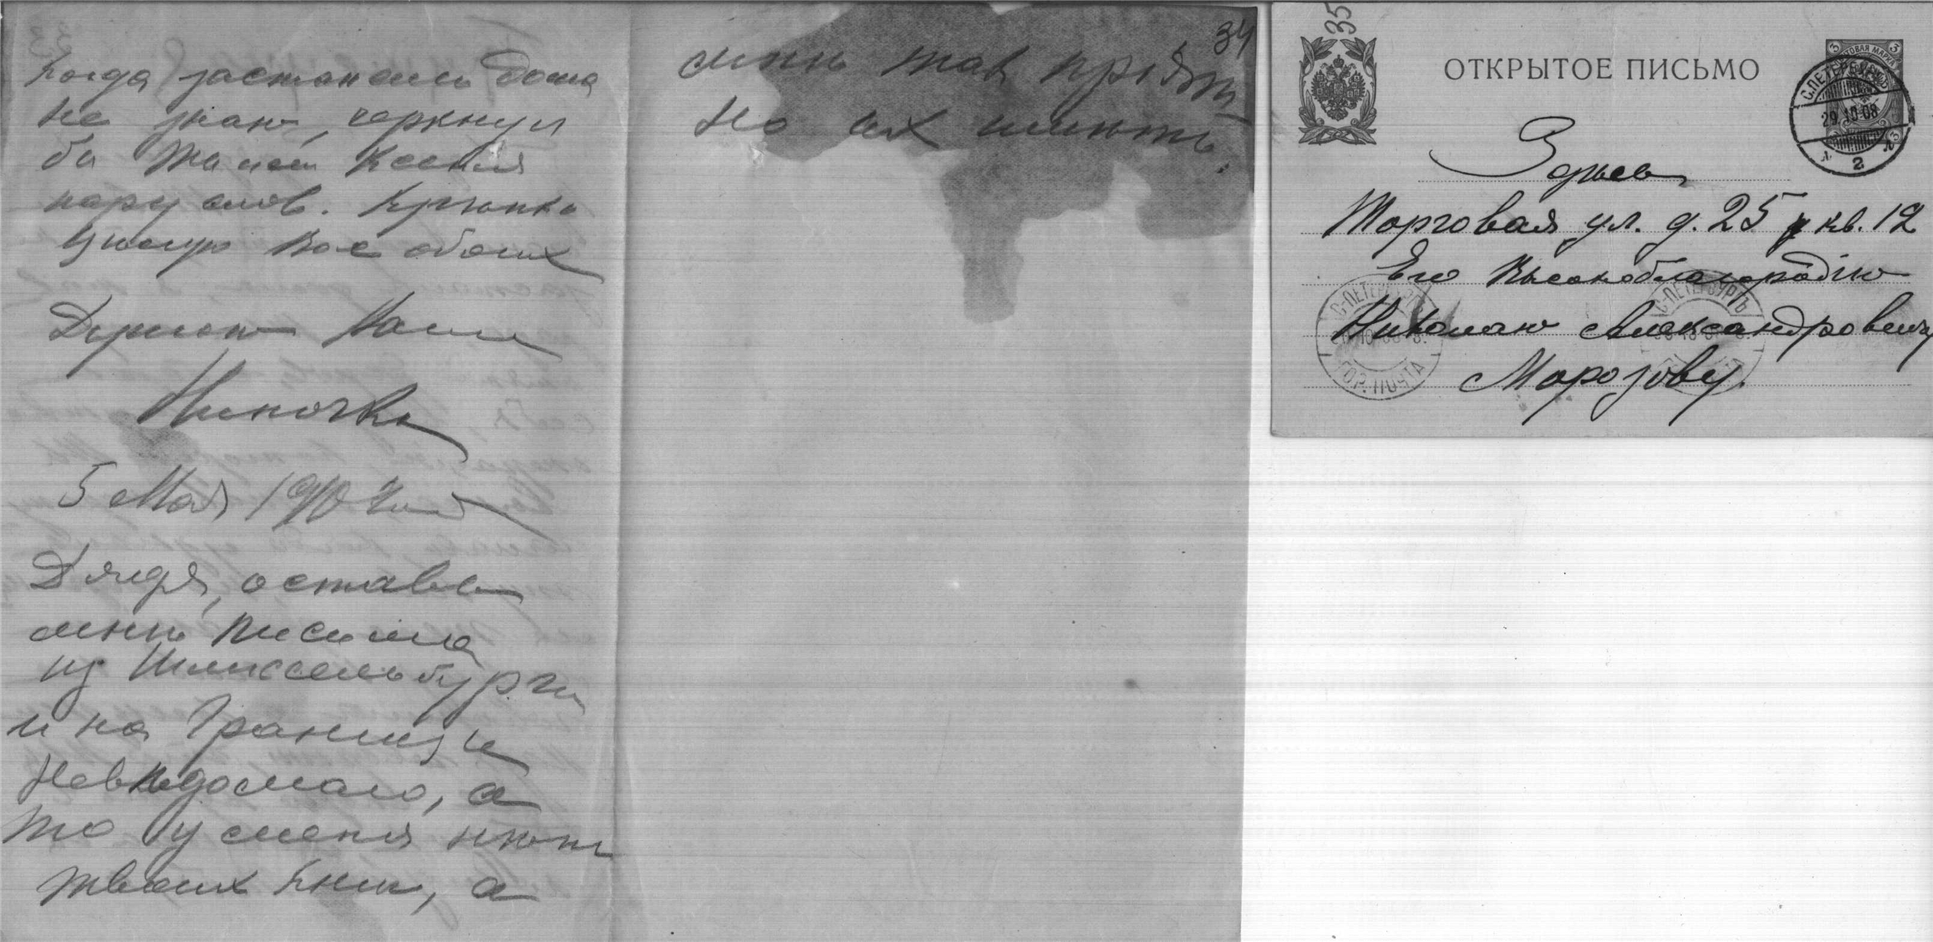 Когда застанешь дома
не знаю, черкнул
бы Жалей Ксения
пару слов. Крѣпко
цѣлую Вас обоих
Ваша
Ниночка
5 Мая 1910 года
Дядя, оставь
мнѣ письма
из Шлиссельбурга
и на Границѣ
Невѣдомаго, а
то у меня нѣтъ
твоих книг, а
34
мнѣ так пріят
но их имѣть.
35
ОТКРЫТОЕ ПИСЬМО
С.ПЕТЕРБУРГЪ
29.10.08
2
Здѣсь
Торговая ул. д. 25 кв. 12
Его Высокоблагородію
Николаю Александровичу
Морозову.
С-ПЕТЕРБУРГЪ
ГОР. ПОЧТА